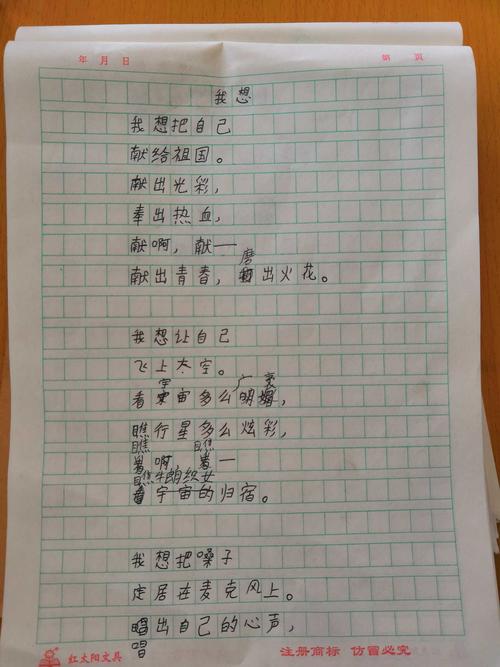 年 月 日 第 页
我想
我想把自己
献给祖国。
献出光彩,
奉出热血,
献啊,献一
献出青春,磨出火花。
我想让自己
飞上太空。
看宇宙多么广袤,
瞧行星多么炫彩,
瞧啊 瞧一
瞧牛郎织女的归宿。
我想把嗓子
定居在麦克风上。
唱出自己的心声,
唱
红太阳文具 注册商标 仿冒必究